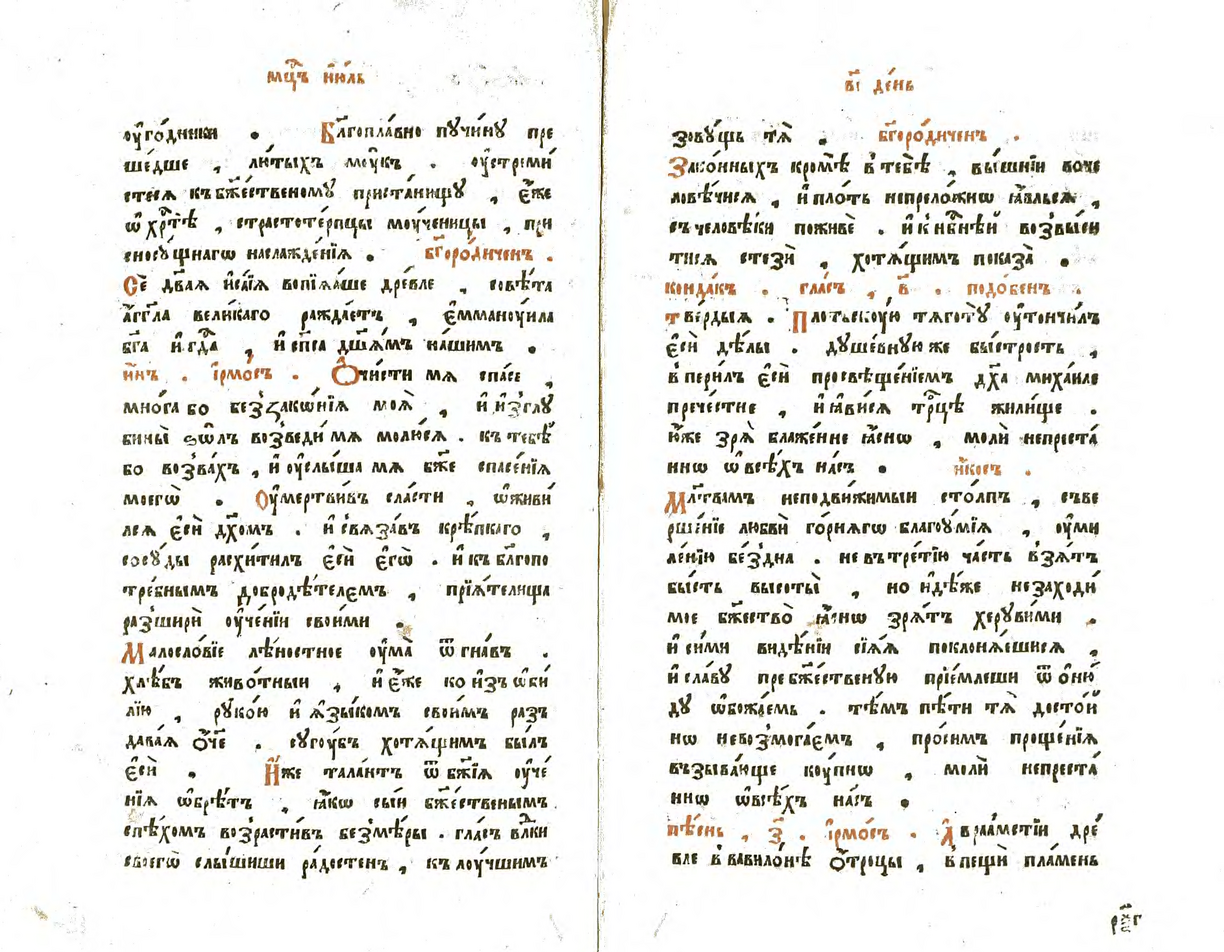 мц҃ъ і҆ю́ль
ᲂу҆го́дники . Бл҃гопла́вно пꙋчи́нꙋ пре
ше́дше , лю́тыхъ мо́укъ . ᲂу҆стреми́
стеся къ бж҃е́ственомꙋ приста́нищꙋ , є҆́же
ѡ҆ хрⷭ҇тѣ̀ , страстоте́рпцы мо́ученицы , при
сносꙋ́щнагѡ наслажде́нїѧ . бг҃оро́диченъ .
Сѐ два́ѧ и҆са́їѧ вопїѧ́ше дре́вле , совѣ́та
а҆́гг҃ла вели́каго ражда́етъ , є҆ммано́уила
бг҃а и҆ гдⷭ҇а , и҆ сп҃са дш҃а́мъ на́шимъ .
и҆́нъ . і҆рмо́съ . Ѻ҆чи́сти мѧ спа́се ,
мно́га бо беззакѡ́нїѧ моѧ̀ , и҆ и҆зглꙋ
бины̀ ѕѡ́лъ возведи́ мѧ молю́сѧ . къ тебѣ́
бо возва́хъ , и҆ ᲂу҆слы́ша мѧ бж҃е спасе́нїѧ
моегѡ̀ . Оу҆мертви́въ сла́сти , ѡ҆живи́
лсѧ є҆сѝ дх҃омъ . и҆ свѧза́въ крѣ́пкаго ,
сосꙋ́ды расхи́тилъ є҆сѝ є҆гѡ̀ . и҆ къ бл҃гопо
тре́бнымъ добродѣ́телємъ , прїѧ́телища
разширѝ ᲂу҆че́нїи свои́ми .
Малосло́вїе лѣ́ностное ᲂу҆ма̀ ѿгна́въ .
хлѣ́бъ живо́тныи , и҆ є҆́же ко и҆з̾ ѡ҆би́
лїю , рꙋко́ю и҆ ꙗ҆зы́комъ свои́мъ раз
дава́ѧ ѻ҆́ч҃е . сꙋгоу́бъ хотѧ́щимъ бы́лъ
є҆сѝ . И҆́же тала́нтъ ѿ бж҃їѧ ᲂу҆че́
нїѧ ѡ҆брѣ́тъ , ꙗ҆́кѡ сы́и бж҃е́ственымъ
спѣ́хомъ возрасти́въ безмѣ́ры . гла́съ влⷣки
своегѡ̀ слы́шиши ра́достенъ , къ лоу́чшимъ
в҃і де́нь
зовꙋ́щь тѧ̀ . бг҃оро́диченъ .
Зако́нныхъ кромѣ̀ в̾ тебѣ̀ , вы́шнїи воче
ловѣ́чисѧ , и҆ пло́ть непрело́жнѡ ꙗ҆́вльсѧ ,
съ человѣ́ки поживѐ . и҆ к̾ нбⷭ҇нѣ́й возвыси
тисѧ стезѝ , хотѧ́щимъ показа̀ .
конда́къ . гла́съ , в҃ . подо́бенъ .
тве́рдыѧ . Плотьско́ую тѧготꙋ̀ ᲂу҆тончи́лъ
є҆сѝ дѣ́лы . дꙋше́внꙋю же бы́стрость ,
в̾пери́лъ є҆сѝ просвѣще́нїемъ дх҃а миха́иле
пречестне , и҆ ꙗ҆ви́сѧ трⷪ҇цѣ жили́ще .
ю҆́же зрѧ̀ блаже́нне ꙗ҆́снѡ , молѝ непреста́
ннѡ ѡ҆ всѣ́хъ на́съ . и҆́косъ .
Мл҃твамъ неподви́жимыи сто́лпъ , съве
рше́нїе любвѝ го́рнѧгѡ благоу́мїѧ , ᲂу҆ми
ле́нїю бе́здна . не въ тре́тїю ча́сть взѧ́тъ
бы́сть высоты̀ , но и҆дѣ́же незаходи́
мое бж҃ество̀ ꙗ҆́снѡ зрѧ́тъ херꙋви́ми .
и҆ си́ми ви́дѣнїи сїѧ́ѧ поклонѧ́ешисѧ ,
и҆ сла́вꙋ пребж҃е́ственꙋю прїе́млеши ѿ ѻ҆ню́
дꙋ ѡ҆божа́емь . тѣ́мъ пѣ́ти тѧ̀ досто́й
нѡ невозмога́емъ , про́симъ проще́нїѧ
възыва́юще ко́упнѡ , молѝ непреста́
ннѡ ѡ҆ всѣ́хъ на́съ .
пѣ́снь , з҃ . і҆рмо́съ . А҆враа́мстїи дре́
вле в̾ вавило́нѣ ѻ҆́троцы , в̾ пещѝ пла́мень